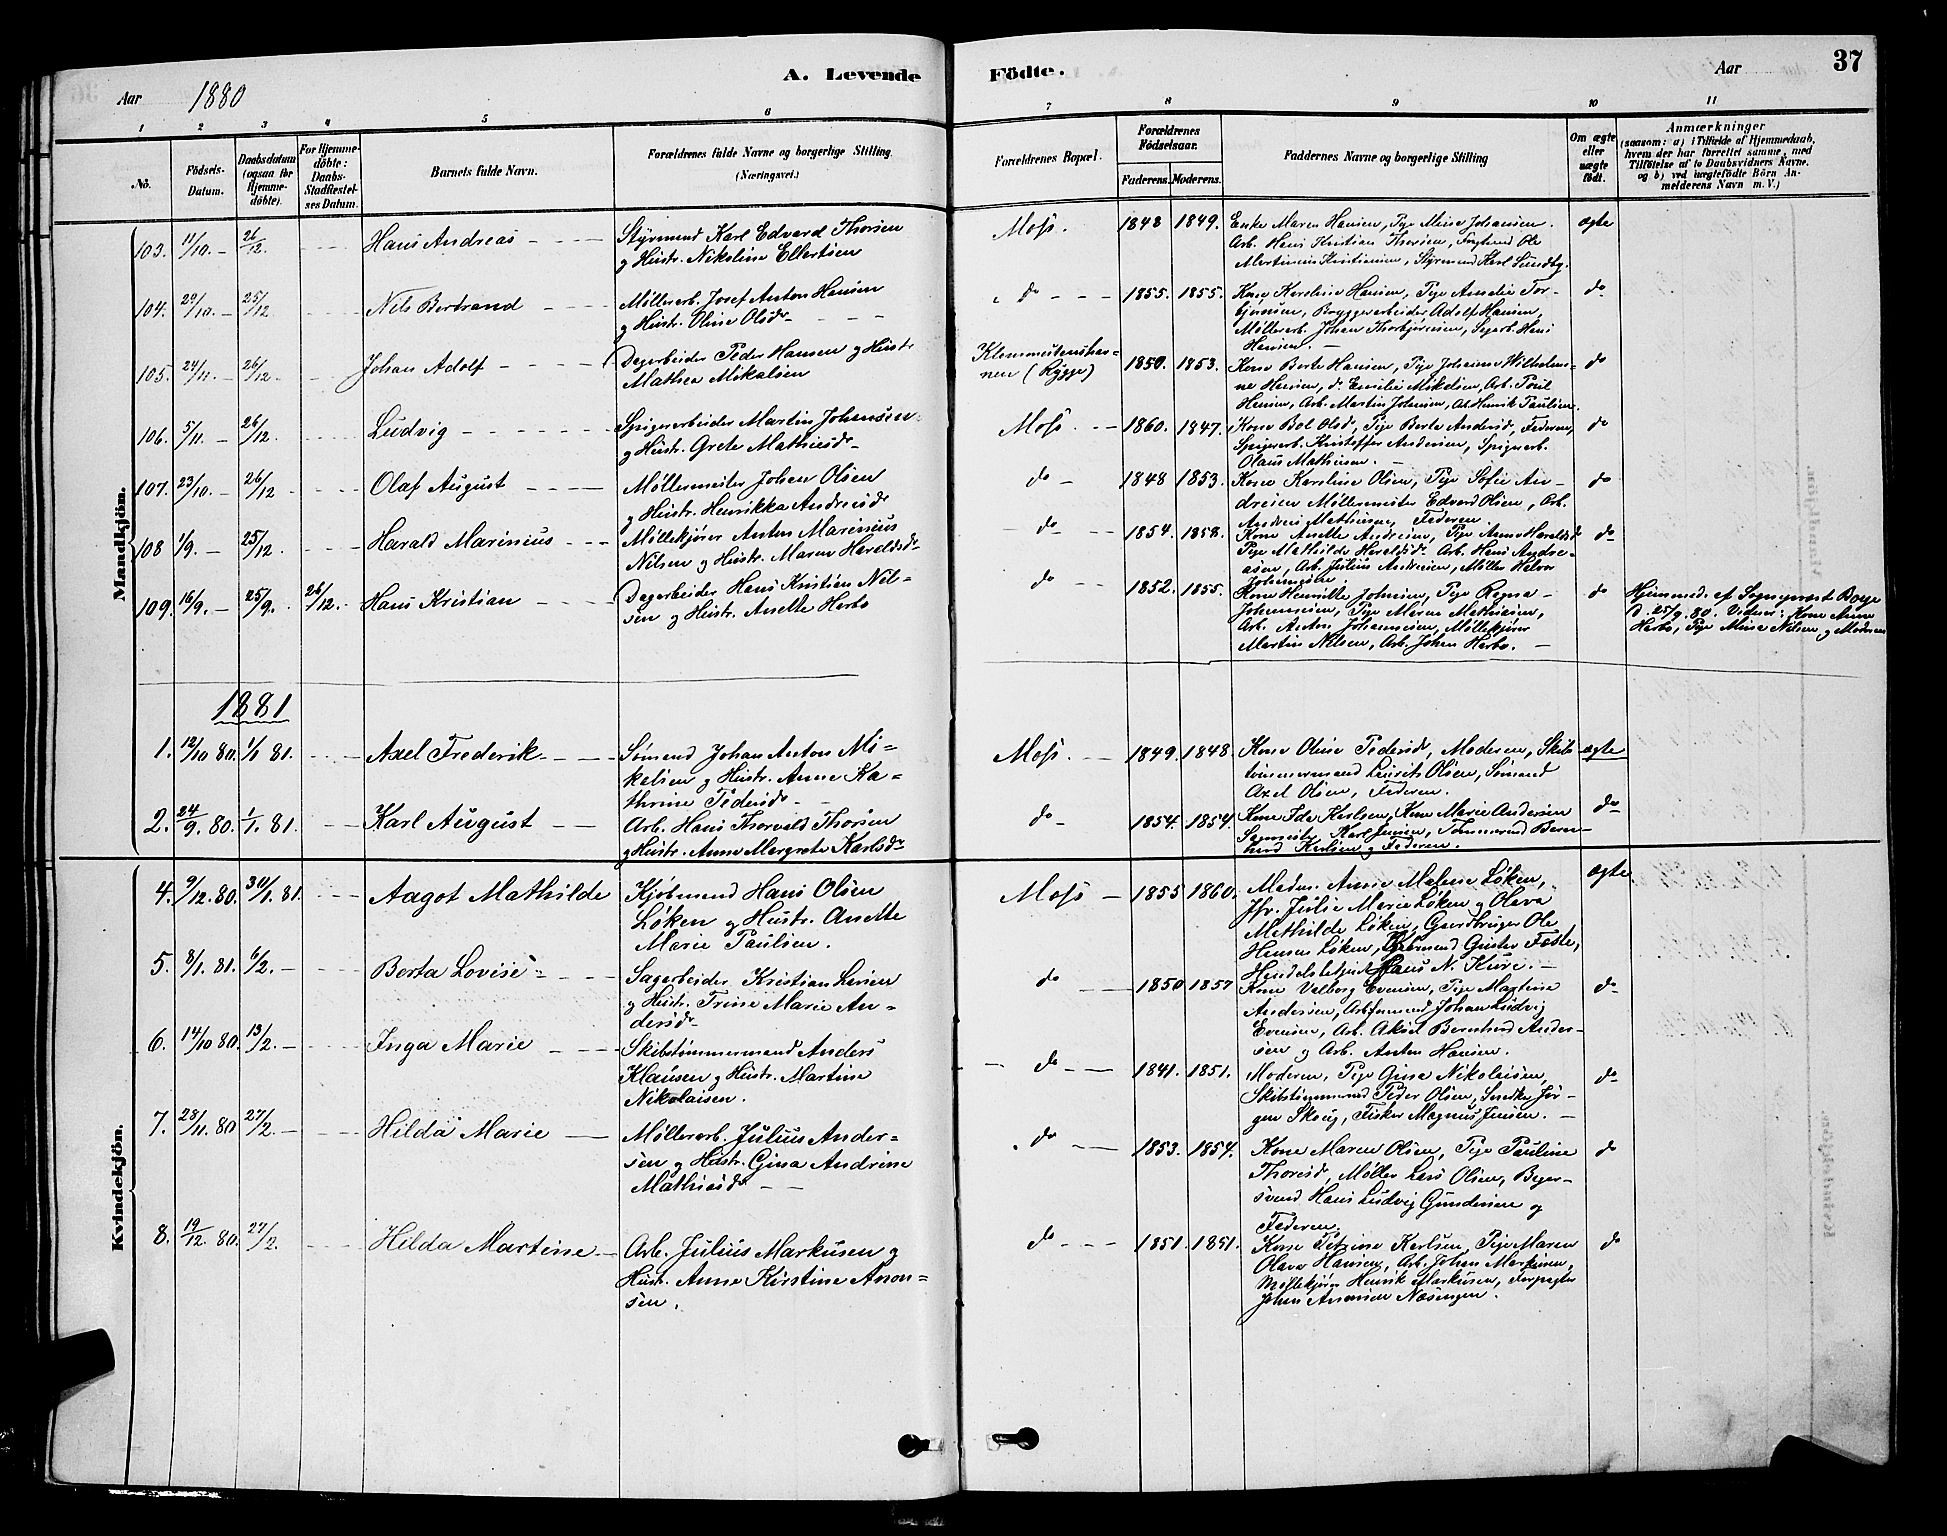 A. Levende Födte.
37
Aar 1880
Aar
1 2 3 4 5 6 7 8 9 10 11
No.
Födsels-Datum.
Daabsdatum (ogsaa for Hjemme-döbte).
For Hjemme-döbte: Daabs-Stadfæstel-ses Datum.
Barnets fulde Navn.
Forældrenes fulde Navne og borgerlige Stilling.
(Næringsvei.)
Forældrenes Bopæl.
Forældrenes Fødselsaar.
Faderens. Moderens.
Faddernes Navne og borgerlige Stilling
Om ægte eller uægte födt.
Anmærkninger
(saasom: a) i Tilfælde af Hjemmedaab,
hvem der har forrettet samme, med
Tilföielse af to Daabsvidners Navne.
og b) ved uægtefödte Börn An-
melderens Navn m. V.)
Mandkjön.
103. 11/10. 26/12. Hans Andreas Styrmand Karl Edvard Thorsen
og Hustr. Nikoline Ellertsen
Moss. 1848 1849. Enke Maren Hansen, Pige Mina Johansen.
Arb. Hans Kristian Thorsen, Ole
Martinius Kristiansen, Styrmand Karl Sundby.
ægte
104. 29/10. 25/12 Nils Bertrand Møllerarb. Josef Anton Hansen
og Hustr. Oline Olsdr
do 1855. 1855. Kone Karoline Hansen, Pige Amalie Tor-
bjørnsen, Bryggerarbeider Adolf Hansen,
Møllerarb. Johan Thorbjørnsen, Sagarb. Hans
Hansen.
do
105. 24/11. 26/12 Johan Adolf Dagarbeider Peder Hansen og Hustr
Mathea Mikalsen
(Rygge) 1850. 1853. Kone Berte Hansen, Pige Johanne Wilhelmi-
ne Hansen, do Emilie Mikelsen, Arb. Poul
Hansen, Arb. Martin Johansen, Arb. Henrik Paulsen.
do
106. 5/11. 26/12 Ludvig Spigerarbeider Martin Johansen
og Hustr. Grete Mathiesdr
Moss. 1860. 1847. Kone Bol Olsd, Pige Berte Andersd, Faderen,
Spigerarb. Kristoffer Andersen, Spigerarb.
Olaus Mathisen.
do
107. 23/10. 26/12 Olaf August Møllermester Johan Olsen
og Hustr. Henrikka Andreasdr
do 1848 1853. Kone Karoline Olsen, Pige Sofie An-
dresen Møllermester Edvard Olsen, Arb.
Andreas Mathisen, Faderen.
do
108 1/9. 25/12. Harald Marinius Møllekjører Anton Marinius
Nilsen og Hustr. Maren Haraldsdr
do 1854. 1858. Kone Anette Andresen, Pige Anne Haraldsd
Pige Mathilde Haraldsdr Arb. Hans Andre-
asen, Arb. Julius Andresen, Møller Halvor
Johannesen.
do
109. 16/9. 25/9. 26/12. Hans Kristian Dagarbeider Hans Kristian Nil-
sen og Hustr. Anette Herbo
do 1852. 1855. Kone Henriette Johnsen, Pige Regna
Johannesen, Pige Maren Mathisen,
Arb. Anton Johannesen, Møllekjører
Martin Nilsen, Arb. Johan Herbo.
do
Hjemmed. af Sogneprest Borge
d. 25/9. 80. Vidner: Kone Anne
Herbo, Pige Mina Nilsen og Moderen
1881
1. 12/10 80. 1/1 81. Axel Frederik Sømand Johan Anton Mi-
kelsen og Hustr. Anne Ka-
thrine Pedersdr
Moss. 1849. 1848. Kone Oline Pedersdr, Moderen, Skibs
tømmermand Laurits Olsen, Sømand
Axel Olsen, Faderen.
ægte
2. 24/9. 80. 1/1. 81. Karl August Arb. Hans Thorvald Thorsen
og Hustr. Anne Margrete Karlsdr
do 1854. 1854. Kone Ida Karlsen, Kone Marie Andersen
Karl Jensen, Tømmermand Bern-
hard Karlsen og Faderen.
do
Kvindekjön.
4. 9/12. 80. 30/1. 81. Aagot Mathilde Kjøbmand Hans Olsen
Løken og Hustr. Anette
Marie Paulsen.
Moss 1855 1860. Madm. Anne Malene Løken,
Jfr. Julie Marie Løken og Olava
Mathilde Løken, Gaardbruger Ole
Hansen Løken, Kjøbmand Gustav Fæste,
Handelsbetjent Hans N. Kure.
ægte
5. 8/1. 81. 6/2. Berta Lovise Sagarbeider Kristian Larsen
og Hustr. Trine Marie An-
dersdr
do 1850 1857 Kone Valborg Evensen, Pige Martine
Andersen, Arbformand Johan Ludvig
Evensen, Arb. Aksel Bernhard Ander-
sen og Arb. Anton Hansen.
do
6. 14/10 80. 13/2. Inga Marie Skibstømmermand Anders
Klausen og Hustr. Martine
Nikolaisen.
do 1841. 1851. Moderen, Pige Gina Nikolaisen,
Skibstømmermand Peder Olsen, Snedker Jør-
gen Skoug, Fisker Magnus Jensen.
do
7. 28/11. 80 27/2. Hilda Marie Møllerarb. Julius Ander-
sen og Hustr. Gina Andrine
Mathiasdr
do 1853. 1854. Kone Maren Olsen, Pige Pauline
Thoresdr, Møller Lars Olsen, Bager-
svend Hans Ludvig Gundersen og
Faderen.
do
8. 19/12. 80. 27/2. Hilda Martine Arb. Julius Markusen og
Hustr. Anne Kirstine Aron-
sen.
do 1851. 1851. Kone Petrine Karlsen, Pige Maren
Olava Hansen, Arb. Johan Martinsen,
Møllekjører Henrik Markusen, Forpagter
Johan Næsengen.
do